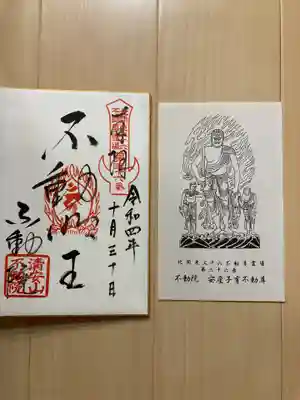 令和四年
十月三十日
不動明王
不動院
清安山
不動院
北関東三十六不動尊霊場
不動院　安産子育不動尊